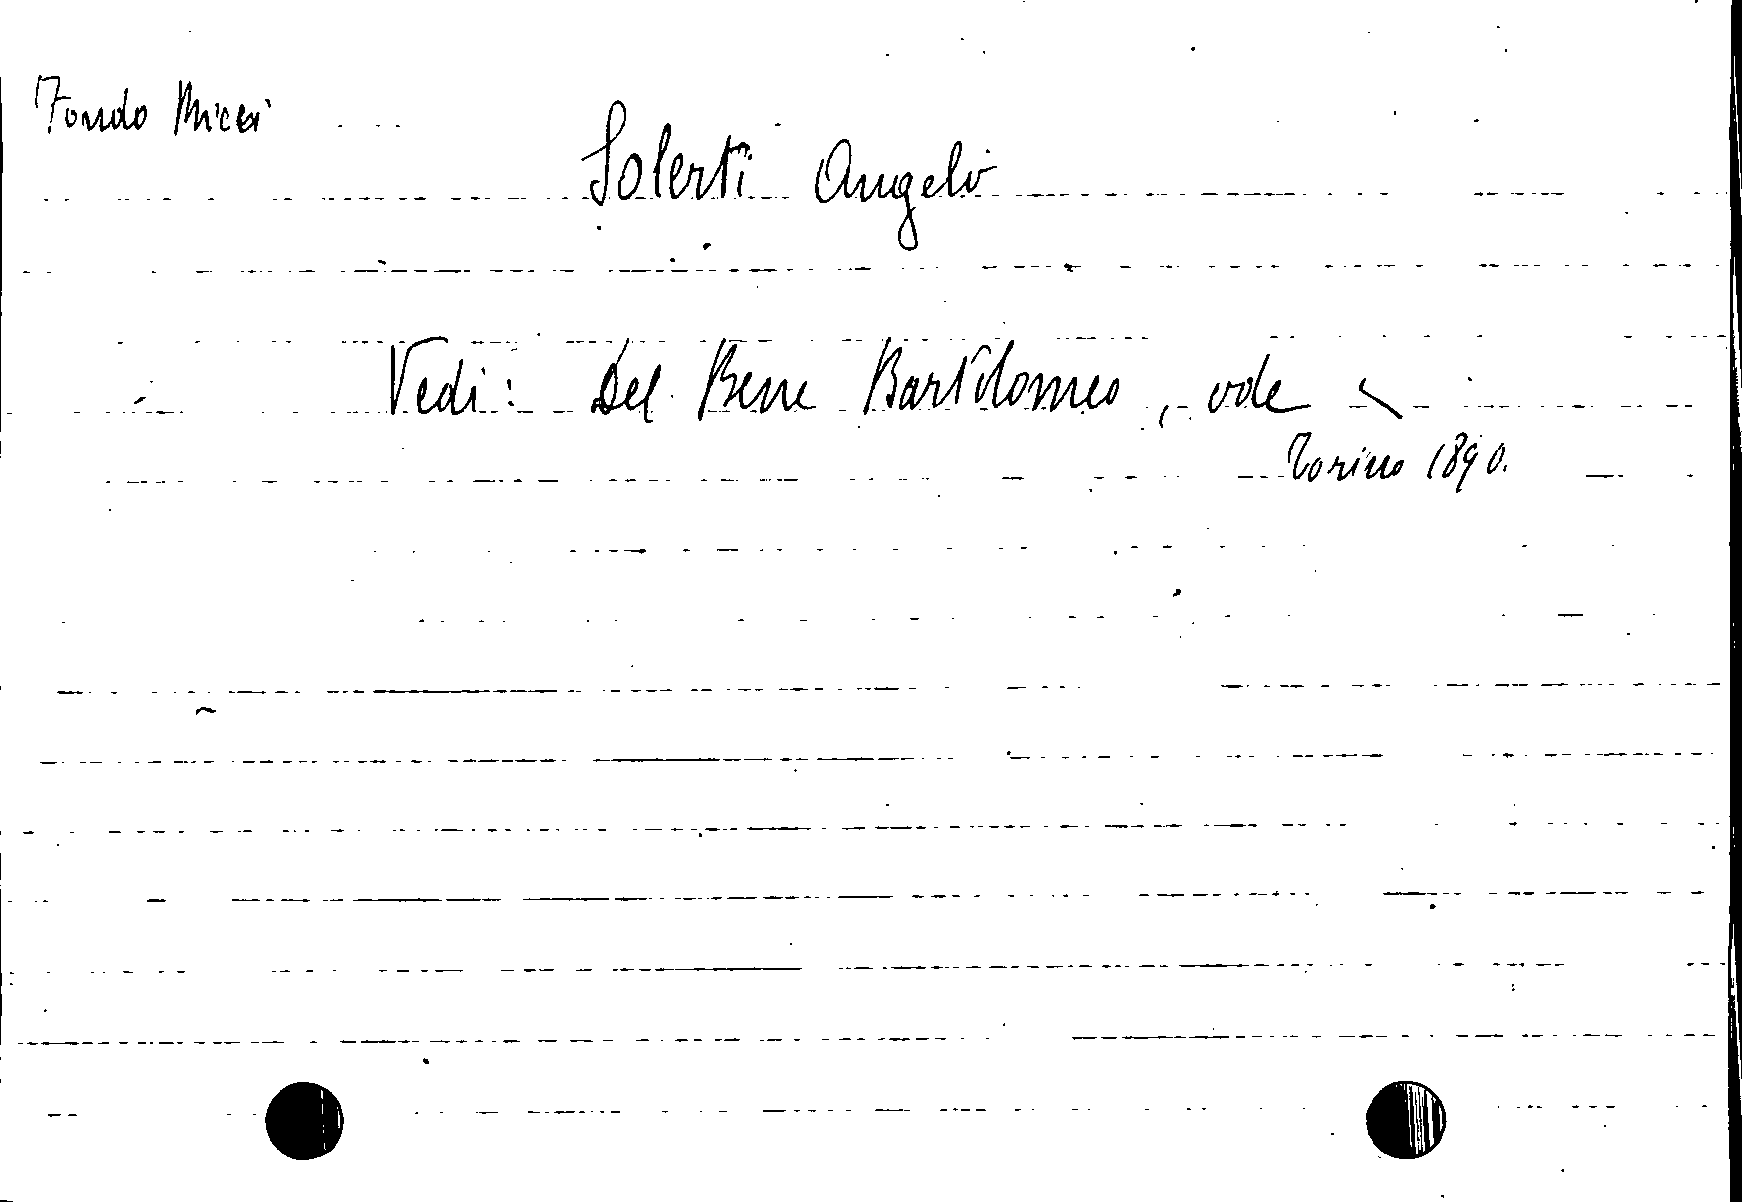 Fondo Micci
Solerti Angelo
Vedi: Del Bene Bartolomeo, ode
Torino 1890.